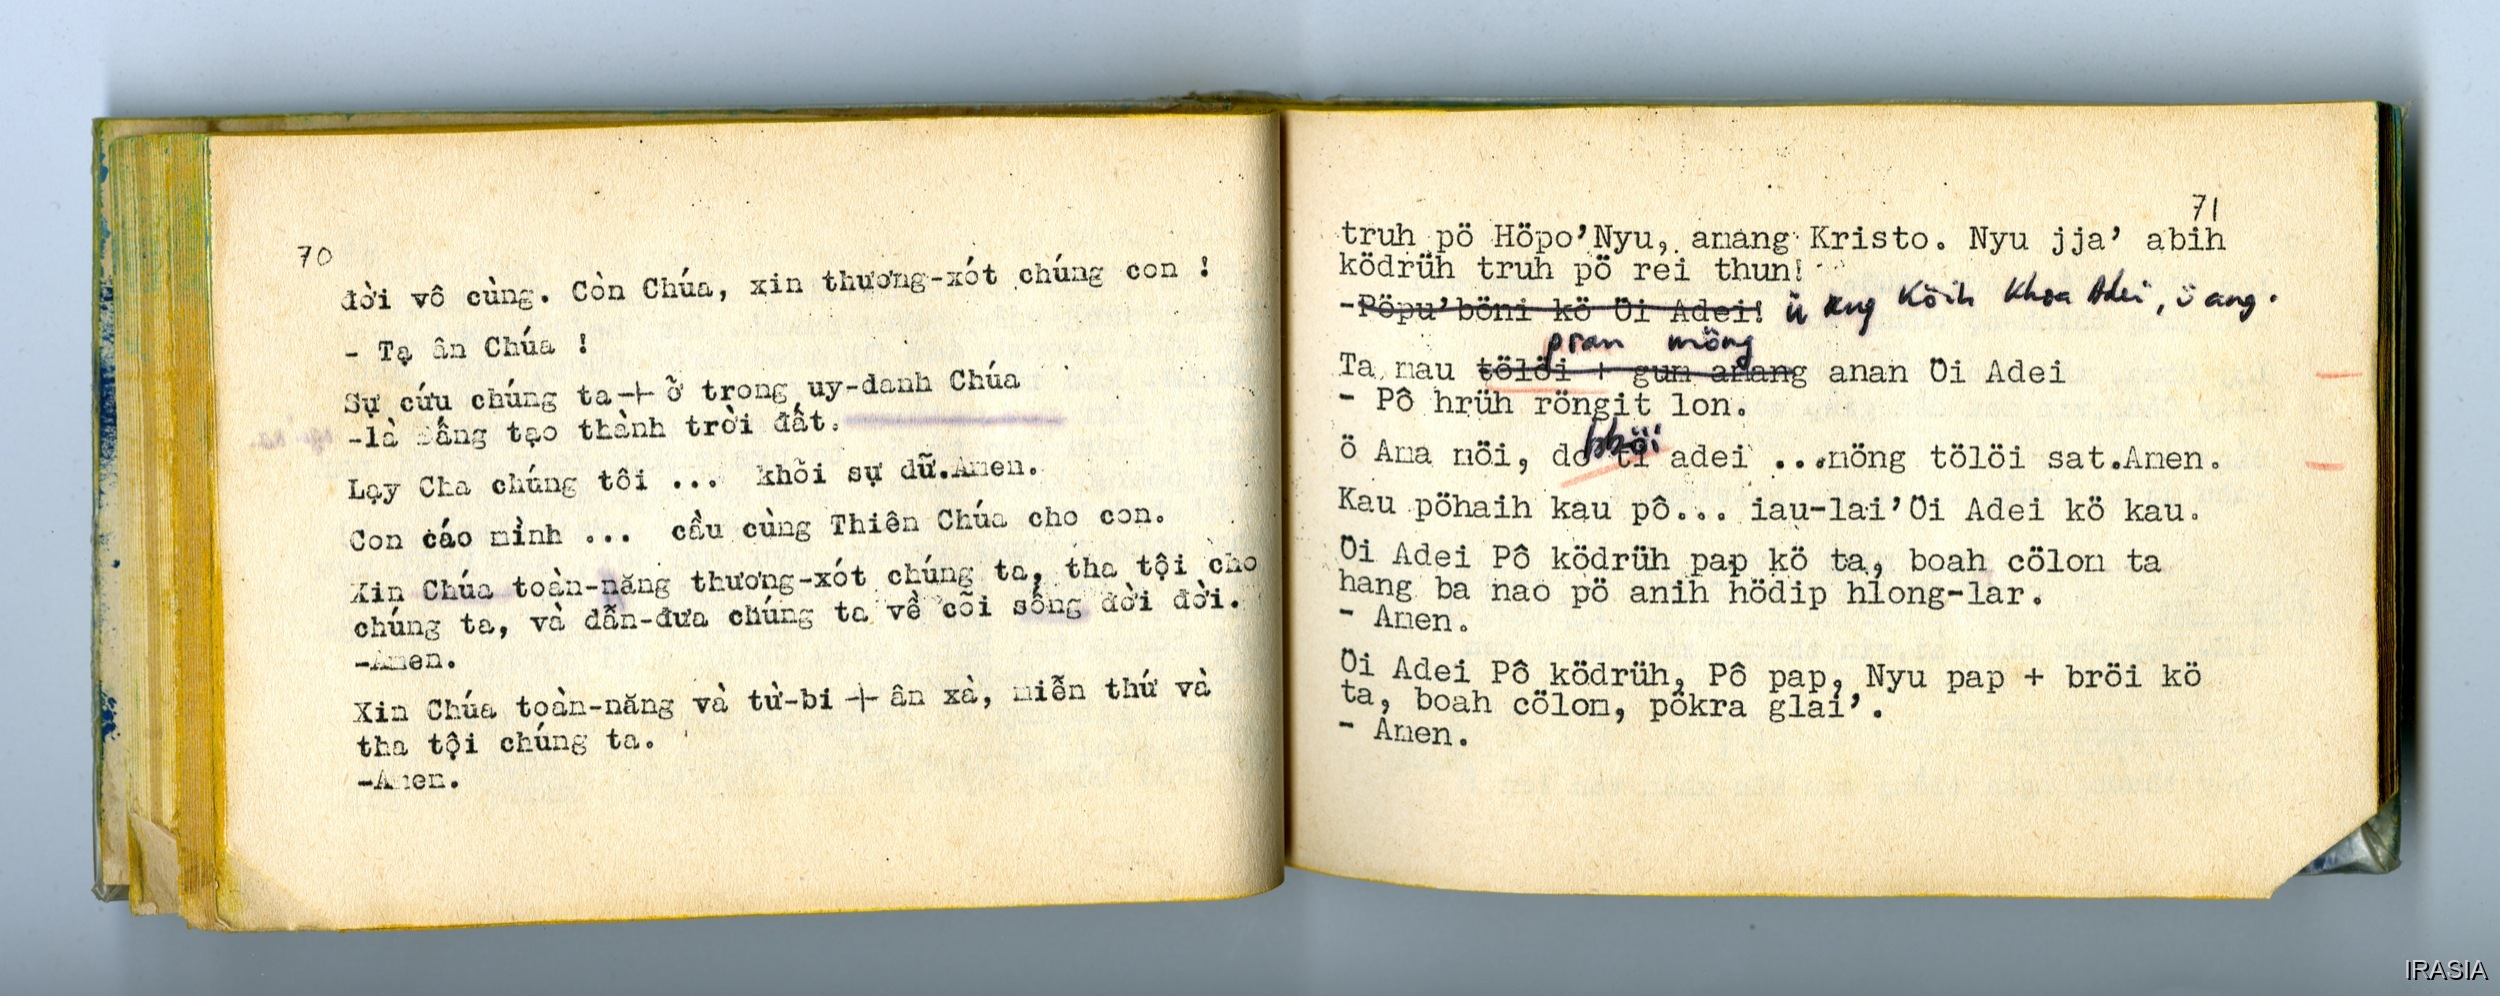 70
đời vô cùng. Còn Chúa, xin thương-xót chúng con !
- Tạ ân Chúa !
Sự cứu chúng ta + ở trong uy-danh Chúa
-là Đấng tạo thành trời đất.
Lạy Cha chúng tôi ... khỏi sự dữ.Amen.
Con cáo mình ... cầu cùng Thiên Chúa cho con.
Xin Chúa toàn-năng thương-xót chúng ta, tha tội cho
chúng ta, và dẫn-đưa chúng ta về cõi sống đời đời.
-Amen.
Xin Chúa toàn-năng và từ-bi + ân xà, miễn thứ và
tha tội chúng ta.
-Amen.
71
truh pö Höpo'Nyu, amang Kristo. Nyu jja' abih
ködrüh truh pö rei thun!
-Pöpu'böni kö Öi Adei! ü ang Köih Khoa Adei, ü ang.
pran möng
Ta mau tölöi + gum amang anan Öi Adei
- Pô hrüh röngit lon.
bböi
ö Ama möi, do ti adei ...möng tölöi sat.Amen.
Kau pöhaih kau pô... iau-lai'Öi Adei kö kau.
Öi Adei Pô ködrüh pap kö ta, boah cölom ta
hang ba nao pö anih hödip hlong-lar.
- Amen.
Öi Adei Pô ködrüh, Pô pap, Nyu pap + bröi kö
ta, boah cölom, pökra glai'.
- Amen.
IRASIA